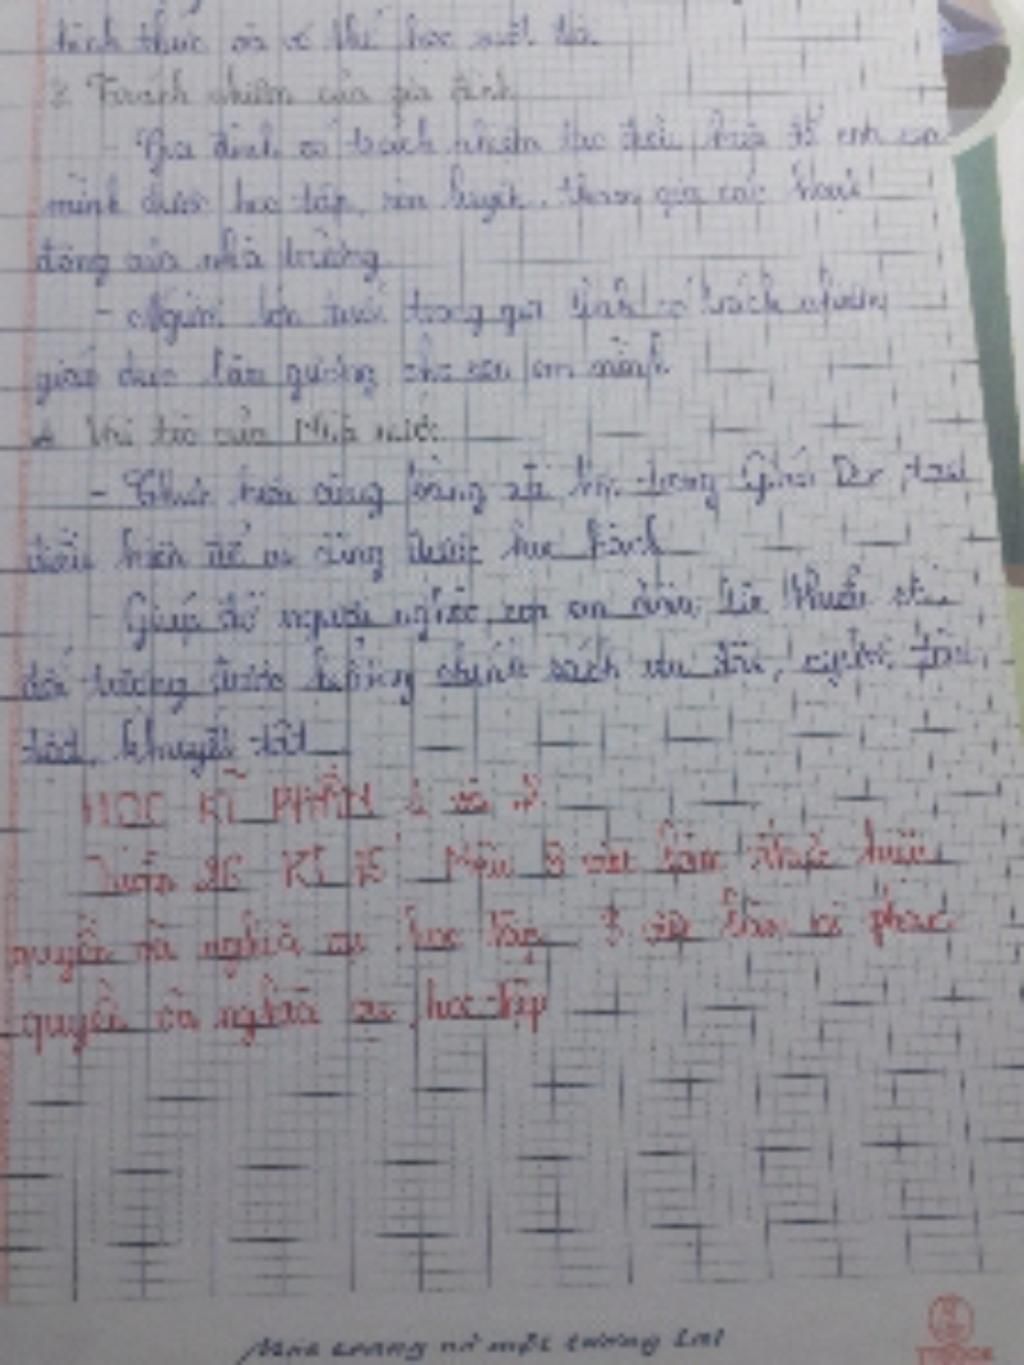 hình thức và có thể học suốt đời.
3. Trách nhiệm của gia đình
- Gia đình có trách nhiệm tạo điều kiện để con em
mình được học tập, rèn luyện, tham gia các hoạt
động của nhà trường
- Người lớn tuổi trong gia đình có trách nhiệm
giáo dục làm gương cho con em mình
4. Vai trò của Nhà nước
- Thực hiện công bằng xã hội trong Giáo Dục, tạo
điều kiện để ai cũng được học hành
- Giúp đỡ người nghèo, con em dân tộc thiểu số,
đối tượng được hưởng chính sách ưu đãi, người tàn
tật, khuyết tật
HỌC KĨ PHẦN 1 và 2
Tuần 26 KT 15' Nêu 3 việc làm thực hiện
quyền và nghĩa vụ học tập. 3 việc làm vi phạm
quyền và nghĩa vụ học tập